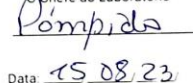 Pómpido
Data 15 08 23